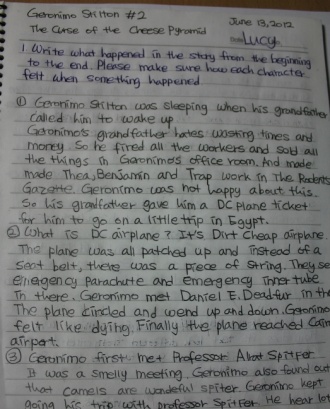 Geronimo Stilton #2
June 13, 2012
The Curse of the Cheese Pyramid
Lucy
1 Write what happened in the story from the beginning
to the end. Please make sure how each character
felt when something happened.
① Geronimo Stilton was sleeping when his grandfather
called him to wake up
Geronimo's grandfather hates wasting times and
money. So he fired all the workers and sold all
the things in Geronimo's office room. And made
made Thea, Benjamin and Trap work in The Rodents
Gazette. Geronimo was not happy about this.
So his grandfather gave him a DC plane ticket
for him to go on a little trip in Egypt.
② What is DC airplane? It's Dirt Cheap airplane.
The plane was all patched up and instead of a
seat belt, there was a piece of string. They se
emergency Parachute and emergency inner tube
in there. Geronimo met Daniel E. Deadfur in th
The plane circled and wend up and down. Geronimo
felt like dying. Finally the plane reached Cairo
airport.
③ Geronimo first met Professor Alrat Spitfer
It was a smelly meeting. Geronimo also found out
that camels are wonderful spiter. Geronimo kept
going his trip with professor Spitfer. He hear lot